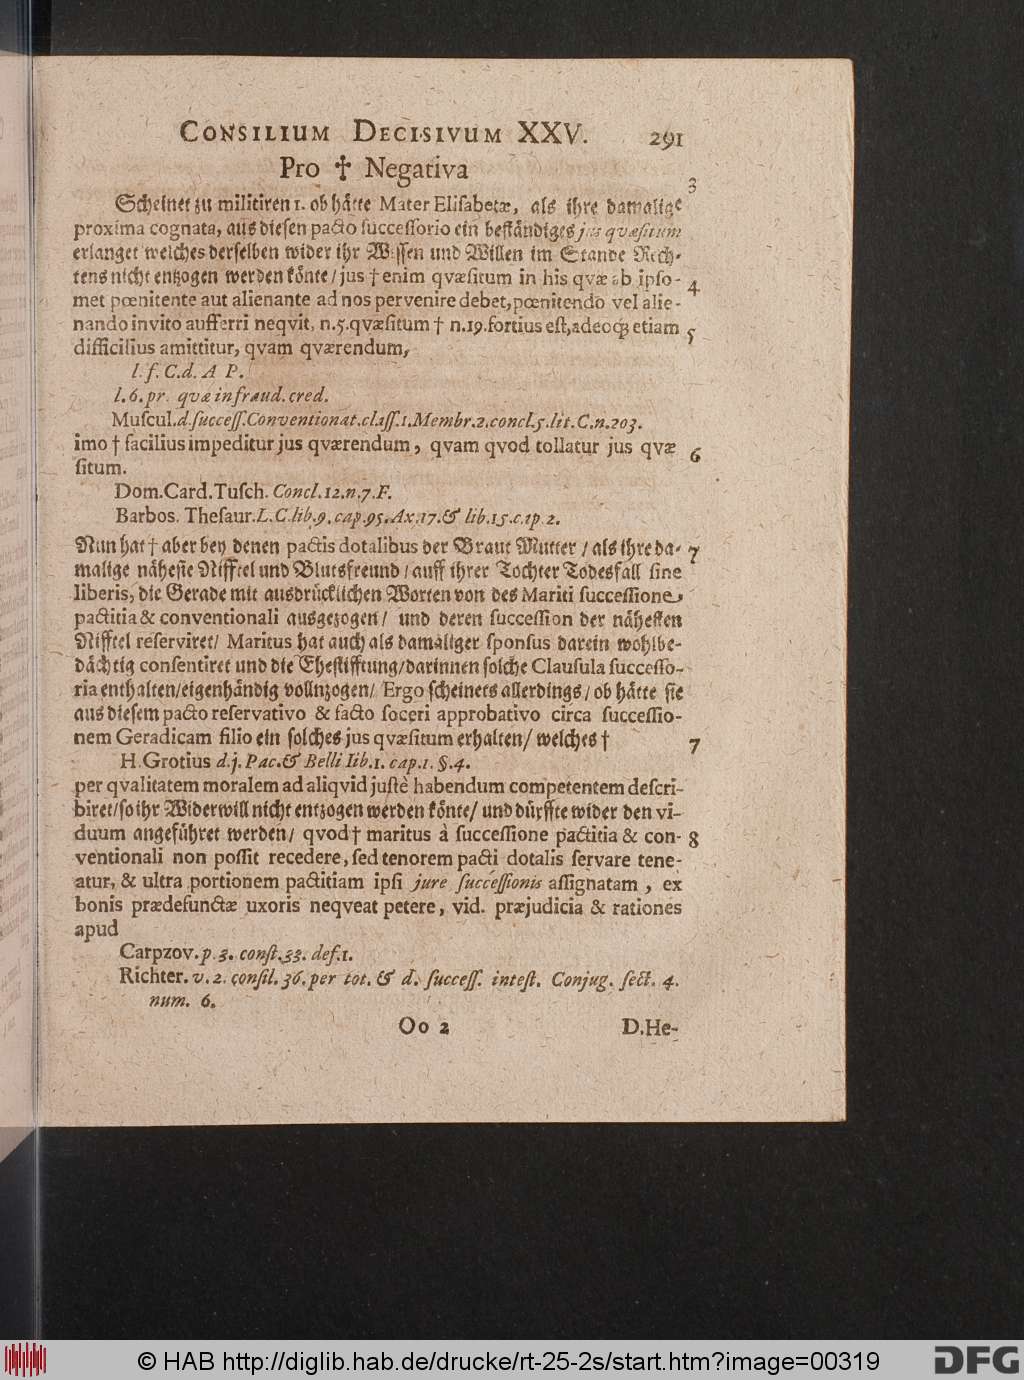 CONSILIUM DECISIVUM XXV. 291
Pro ✝ Negativa
3
Scheinet zu militiren 1. ob hätte Mater Elisabetæ, als ihre damalige
proxima cognata, aus diesen pacto successorio ein beständiges jus quæsitum
erlanget welches derselben wider ihr Wissen und Willen im Stande Rech-
tens nicht entzogen werden könte / jus † enim qvæsitum in his qvæ ab ipso- 4
met pœnitente aut alienante ad nos pervenire debet, pœnitendo vel alie-
nando invito aufferri neqvit, n.5. qvæsitum † n.19. fortius est, adeoq; etiam 5
difficilius amittitur, qvam qværendum,
l. f. C. d. A P.
l. 6. pr. quæ in fraud. cred.
Muscul. d. success. Conventionat. class. 1. Membr. 2. concl. 5. lit. C. n. 203.
imo † facilius impeditur jus qværendum, qvam qvod tollatur jus qvæ 6
situm.
Dom. Card. Tusch. Concl. 12. n. 7. F.
Barbos. Thesaur. L. C. lib. 9. cap. 95. Ax. 17. & lib. 15. cap. 2.
Nun hat † aber bey denen pactis dotalibus der Braut Mutter / als ihre da- 7
malige näheste Nifftel und Blutsfreund / auff ihrer Tochter Todesfall sine
liberis, die Gerade mit ausdrücklichen Worten von des Mariti successione,
pactitia & conventionali ausgezogen / und deren succession der nähesten
Nifftel reserviret / Maritus hat auch als damaliger sponsus darein wohlbe-
dächtig consentiret und die Ehestifftung / darinnen solche Clausula successo-
ria enthalten / eigenhändig vollnzogen / Ergo scheinets allerdings / ob hätte sie
aus diesem pacto reservativo & facto soceri approbativo circa successio-
nem Geradicam filio ein solches jus qvæsitum erhalten / welches † 7
H. Grotius d. j. Pac. & Belli lib. 1. cap. 1. §. 4.
per qvalitatem moralem ad aliqvid justè habendum competentem descri-
biret / so ihr Widerwill nicht entzogen werden könte / und dürffte wider den vi-
duum angeführet werden / qvod † maritus à successione pactitia & con- 8
ventionali non possit recedere, sed tenorem pacti dotalis servare tene-
atur, & ultra portionem pactitiam ipsi jure successionis assignatam, ex
bonis prædefunctæ uxoris neqveat petere, vid. præjudicia & rationes
apud
Carpzov. p. 3. const. 33. def. 1.
Richter. v. 2. consil. 36. per tot. & d. success. intest. Conjug. sect. 4.
num. 6.
Oo 2 D. He-
© HAB http://diglib.hab.de/drucke/rt-25-2s/start.htm?image=00319 DFG